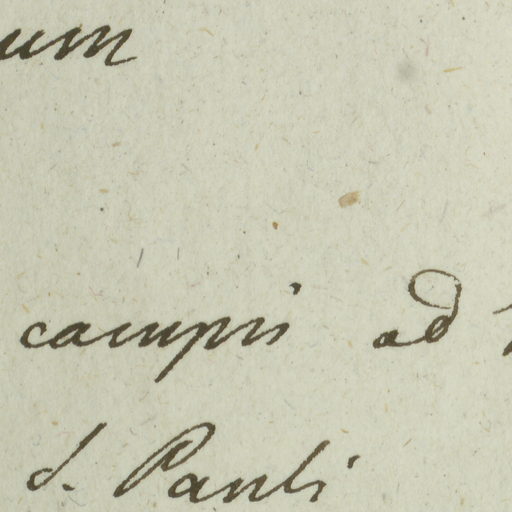 um
campi ad
S. Pauli